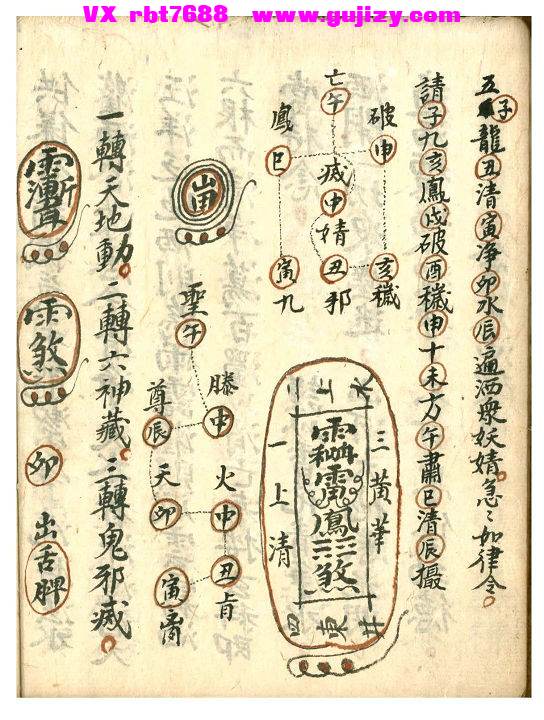 VX rbt7688 www.gujizy.com
五子龍丑清寅净卯水辰遍洒衆妖婧急〻如律令
請子九亥鳳戌破酉穢申十未方午肅巳清辰攝
破申
亥穢
亡午
滅申婧
丑邪
鳳巳
寅九
二上水
三黃華
鳳
煞
一上清
四東井
聖午
滕申
火申
丑肓
尊辰
天卯
寅
一轉天地動二轉六神藏三轉鬼邪滅
卯
出舌脾